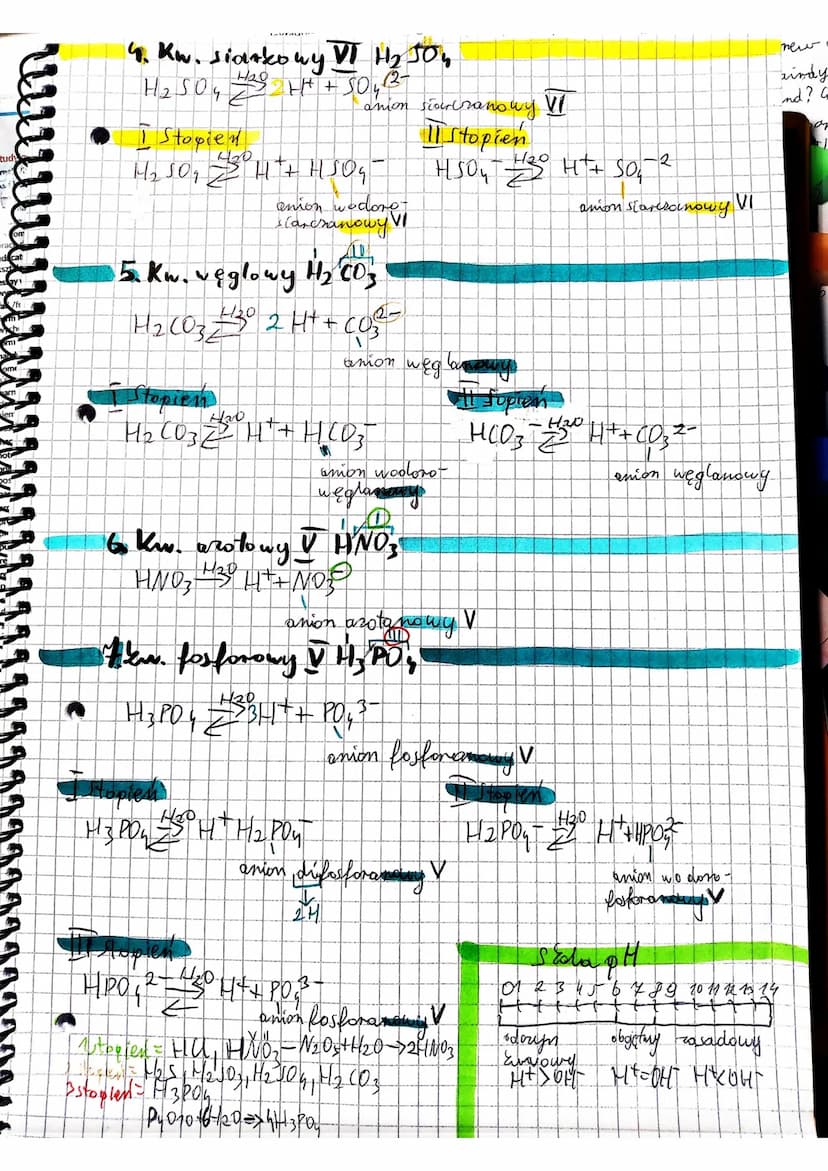 4. Kw. siarkowy VI H₂SO₄
H₂SO₄ ⇄ H₂O 2H⁺ + SO₄²⁻
anion siarczanowy VI
I Stopień
H₂SO₄ ⇄ H₂O H⁺ + HSO₄⁻
anion wodoro-
siarczanowy VI
II Stopień
HSO₄⁻ ⇄ H₂O H⁺ + SO₄⁻²
anion siarczanowy VI
5. Kw. węglowy H₂CO₃
I II
H₂CO₃ ⇄ H₂O 2 H⁺ + CO₃²⁻
anion węglanowy
I Stopień
H₂CO₃ ⇄ H₂O H⁺ + HCO₃⁻
anion wodoro-
węglanowy
II Stopień
HCO₃⁻ ⇄ H₂O H⁺ + CO₃²⁻
anion węglanowy
6. Kw. azotowy V HNO₃
I I
HNO₃ → H₂O H⁺ + NO₃⁻
anion azotanowy V
7. kw. fosforowy V H₃PO₄
I III
H₃PO₄ ⇄ H₂O 3H⁺ + PO₄³⁻
anion fosforanowy V
I Stopień
H₃PO₄ ⇄ H₂O H⁺ H₂PO₄⁻
anion difosforanowy V
2H
II Stopień
H₂PO₄⁻ ⇄ H₂O H⁺ + HPO₄²⁻
anion wodoro-
fosforanowy V
III Stopień
HPO₄²⁻ ⇄ H₂O H⁺ + PO₄³⁻
anion fosforanowy V
1stopień = HCl, HNO₃ – N₂O₅ + H₂O → 2HNO₃
H₂S, H₂SO₃, H₂SO₄, H₂CO₃
3stopień = H₃PO₄
P₄O₁₀ + 6H₂O ⇒ 4H₃PO₄
Skala pH
0 1 2 3 4 5 6 7 8 9 10 11 12 13 14
odczyn obojętny zasadowy
kwasowy
H⁺>OH⁻ H⁺=OH⁻ H⁺<OH⁻